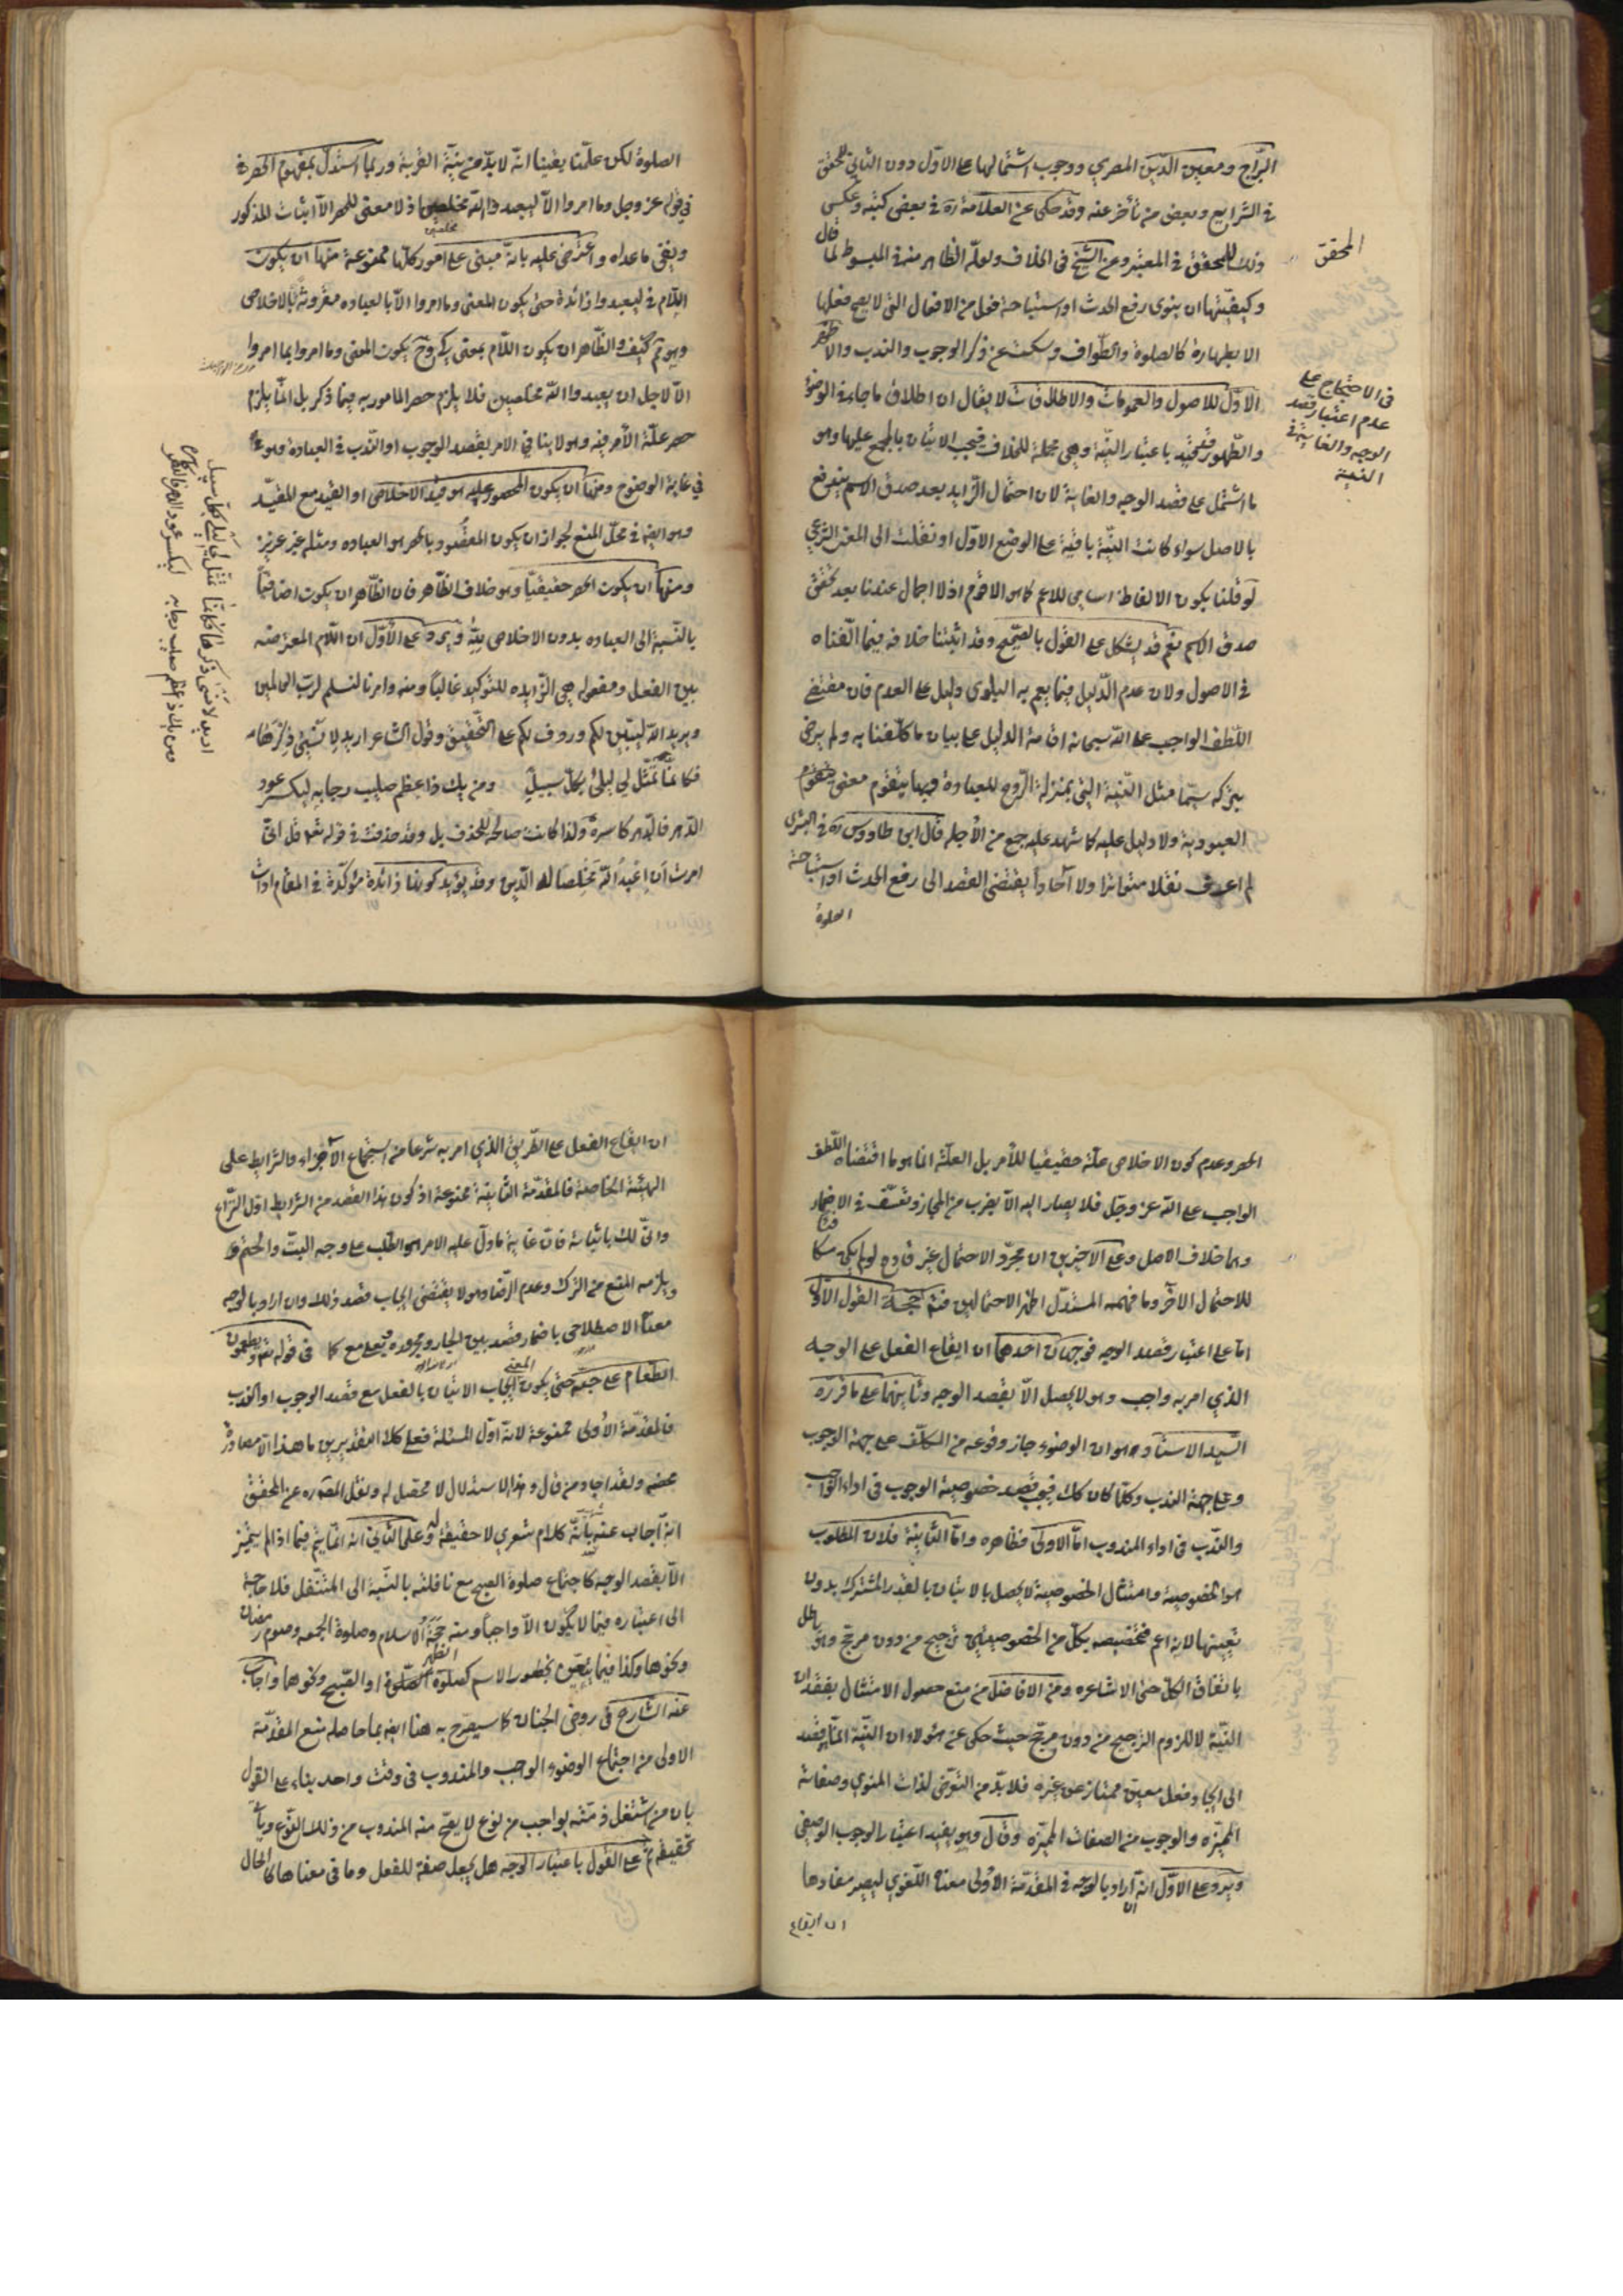 البرّاج ومعين الدّين المصري ووجوب اشتمالها على الاوّل دون الثاني للمحقق
في الشرايع وبعض من تأخر عنه وقد حكى عن العلامة ره في بعض كتبه وعكس
ذلك للمحقق في المعتبر وعن الشيخ في الخلاف ولعلّه الظاهر منه في المبسوط لما قال
وكيفيّتها ان ينوى رفع الحدث او استباحة فعل من الافعال التي لا يصح فعلها
الا بطهارة كالصلوة والطّواف وسكت عن ذكر الوجوب والندب والاظهر
الاوّل للاصول والعمومات والاطلاقات لا يقال ان اطلاق ما جاء في الوضوء
والطّهور مقيّد باعتبار النيّة وهي مجملة للخلاف فيجب الاتيان بالمجمع عليها وهو
ما اشتمل على قصد الوجه والغاية لان احتمال الزّايد بعد صدق الاسم يندفع
بالاصل سواء كانت النيّة باقية على الوضع الاوّل او نقلت الى المعنى الشرعي
لو قلنا بكون الالفاظ اسامي للاعم كما هو الاقوم اذ لا اجمال عندنا بعد تحقّق
صدق الاسم نعم قد يشكل على القول بالصّحيح وقد اثبتنا خلافه فيما الّفناه
في الاصول ولان عدم الدّليل فيما يعم به البلوى دليل على العدم فان مقتضى
اللّطف الواجب على الله سبحانه اقامة الدليل على بيان ما كلّفنا به ولم يرض
بتركه سيّما مثل النيّة التي بمنزلة الرّوح للعبادة وبها يتقوّم معنى
العبودية ولا دليل عليه كما شهد عليه جمع من الأجلّه قال ابن طاووس ره في البشرى
لم اعرف نقلا متواترا ولا آحادا يقتضي القصد الى رفع الحدث او استباحة
الصلوة
المحقق
في الاحتجاج على
عدم اعتبار قصد
الوجه والغاية في
النية
الصلوة لكن علمنا يقينا انّه لا بدّ من نيّة القربة وربما استدلّ بمفهوم الحصر
في قوله عز وجل وما امروا الّا ليعبدوا الله مخلصين اذ لا معنى للحصر الّا اثبات المذكور
مخلصين
ونفى ما عداه واعترض عليه بانّه مبنى على امور كلّها ممنوعة منها ان يكون
اللّام في ليعبدوا زائدة حتى يكون المعنى وما امروا الّا بالعباده مقرونة بالاخلاص
وهو ثم كيف والظّاهر ان يكون اللّام بمعنى كى وح يكون المعنى وما امروا بما امروا
الّا لاجل ان يعبدوا الله مخلصين فلا يلزم حصر المامور به فيما ذكر بل انّما يلزم
حصر علّة الأمر فيه وهو لا ينافي الامر بقصد الوجوب او النّدب في العبادة وهو
في غاية الوضوح ومنها ان يكون المحصور عليه هو قيد الاخلاص او القيد مع المقيّد
وهو ايضا في محلّ المنع لجواز ان يكون المقصود بالحصر هو العباده ومثله غير عزيز
ومنها ان يكون الحصر حقيقيّا وهو خلاف الظّاهر فان الظّاهر ان يكون اضافيّا
بالنّسبة الى العباده بدون الاخلاص ويرد على الأوّل ان اللّام المعترضة
بين الفعل ومفعوله هي الزّايده للتوكيد غالباً ومنه وامرنا لنسلم لربّ العالمين
ويريد الله ليبيّن لكم وردف لكم على التّحقيق وقول الشاعر اريد لانسى ذكرها
فكانّما تمثّل لي ليلى بكلّ سبيل ومن يك ذا عظم صليب رجابه ليكسر عود
الدّهر فالدّهر كاسره ولذا كانت صالحة للحذف بل وقد حذفت في قوله تعا قل انّي
امرت أن اعبد الله مخلصا له الدّين وقد يؤيد كونها زائدة مؤكّدة في المقام اداة
اريد لانسى ذكرها فكانما تمثل لي ليلى بكل سبيل
ومن يك ذا عظم صليب رجابه ليكسر عود الدهر فالدهر كاسره
الحصر وعدم كون الاخلاص علّة حقيقيا للأمر بل العلّة انما هو ما اقتضاه اللّطف
الواجب على الله عز وجل فلا يصار اليه الّا بضرب من المجاز وتعسّف في الاضمار
وهما خلاف الاصل وعلى الآخرين ان مجرّد الاحتمال غير قادح لو لم يكن
للاحتمال الآخر وما فهمه المستدلّ اظهر الاحتمالين فتم حجّة القول الأوّل
امّا على اعتبار قصد الوجه فوجهان احدهما ان ايقاع الفعل على الوجه
الذي امر به واجب وهو لا يحصل الّا بقصد الوجه وثانيهما على ما قرره
السيد الاستاد وهو ان الوضوء جاز وقوعه من المكلّف على جهة الوجوب
وعلى جهة الندب وكلّما كان كك فيجب قصد خصوصية الوجوب في اداء الواجب
والنّدب في اداء المندوب امّا الاولى فظاهره وامّا الثّانية فلان المطلوب
هو الخصوصية وامتثال الخصوصية لا يحصل بالاتيان بالقدر المشترك بدون
تعيينها لانه اعم فتخصيصه بكلّ من الخصوصيتين ترجيح من دون مرجّح وهو باطل
باتفاق الكلّ حتى الاشاعره ومن الافاضل من منع حصول الامتثال بفقدان
النّيّة لا للزوم الترجيح من دون مرجّح حيث حكى عن هؤلاء ان النّيّة انّما يقصد
الى ايجاد فعل معيّن ممتاز عن غيره فلا بدّ من التعرّض لذات المنوي وصفاته
المميّزه والوجوب من الصفات المميّزه وقال وهو يفيد اعتبار الوجوب الوصفي
ويرد على الأوّل انّه ان اراد بالوجه في المقدّمة الأولى معناه اللّغوي ليصير مفادها
ان ايقاع
ان ايقاع الفعل على الطّريق الذي امر به شرعا من استجماع الأجزاء والشرايط على
الهيئة الخاصة فالمقدّمة الثّانية ممنوعة اذ كون هذا القصد من الشرايط اوّل النّزاع
وانّى لك باثباته فان غاية ما دلّ عليه الامر هو الطّلب على وجه البتّ والحتم
ويلزمه المنع من الترك وعدم الرّضا وهو لا يقتضي ايجاب قصد ذلك وان اراد بالوجه
معناه الاصطلاحي باضمار قصد بين الجار ومجروره كما في قوله تعا ويطعمون
الطّعام على حبّه حتى يكون المعنى ايجاب الاتيان بالفعل مع قصد الوجوب او الندب
فالمقدّمة الأولى ممنوعة لانّه اوّل المسئلة فعلى كلا التقديرين ما هذا الّا مصادرة
محضه ولقد اجاد من قال وهذا الاستدلال لا محصّل له ونقل عن المحقّق
انه اجاب عنه بأنّه كلام شعري لا حقيقة له وعلى الثّاني انه انّما يتم فيما اذا لم يتميّز
الّا بقصد الوجه كاجتماع صلوة الصبح مع نافلته بالنّسبة الى المتنفّل فلا حاجة
الى اعتباره فيما لا يكون الّا واجباً ومنه حجّة الاسلام وصلوة الجمعه وصوم رمضان
ونحوها وكذا فيما يتعيّن بخطور الاسم كصلوة الظهر او الصّبح ونحوها واجاب
عنه الشّارح في روض الجنان كما سيصرّح به هنا ايضا بما حاصله منع المقدّمة
الاولى من اجتماع الوضوء الواجب والمندوب في وقت واحد بناء على القول
بان من اشتغل ذمّته بواجب من نوع لا يصحّ منه المندوب من ذلك النّوع
تحقيقه ثم على القول باعتبار الوجه هل يجعل صفة للفعل وما في معناها كالحال